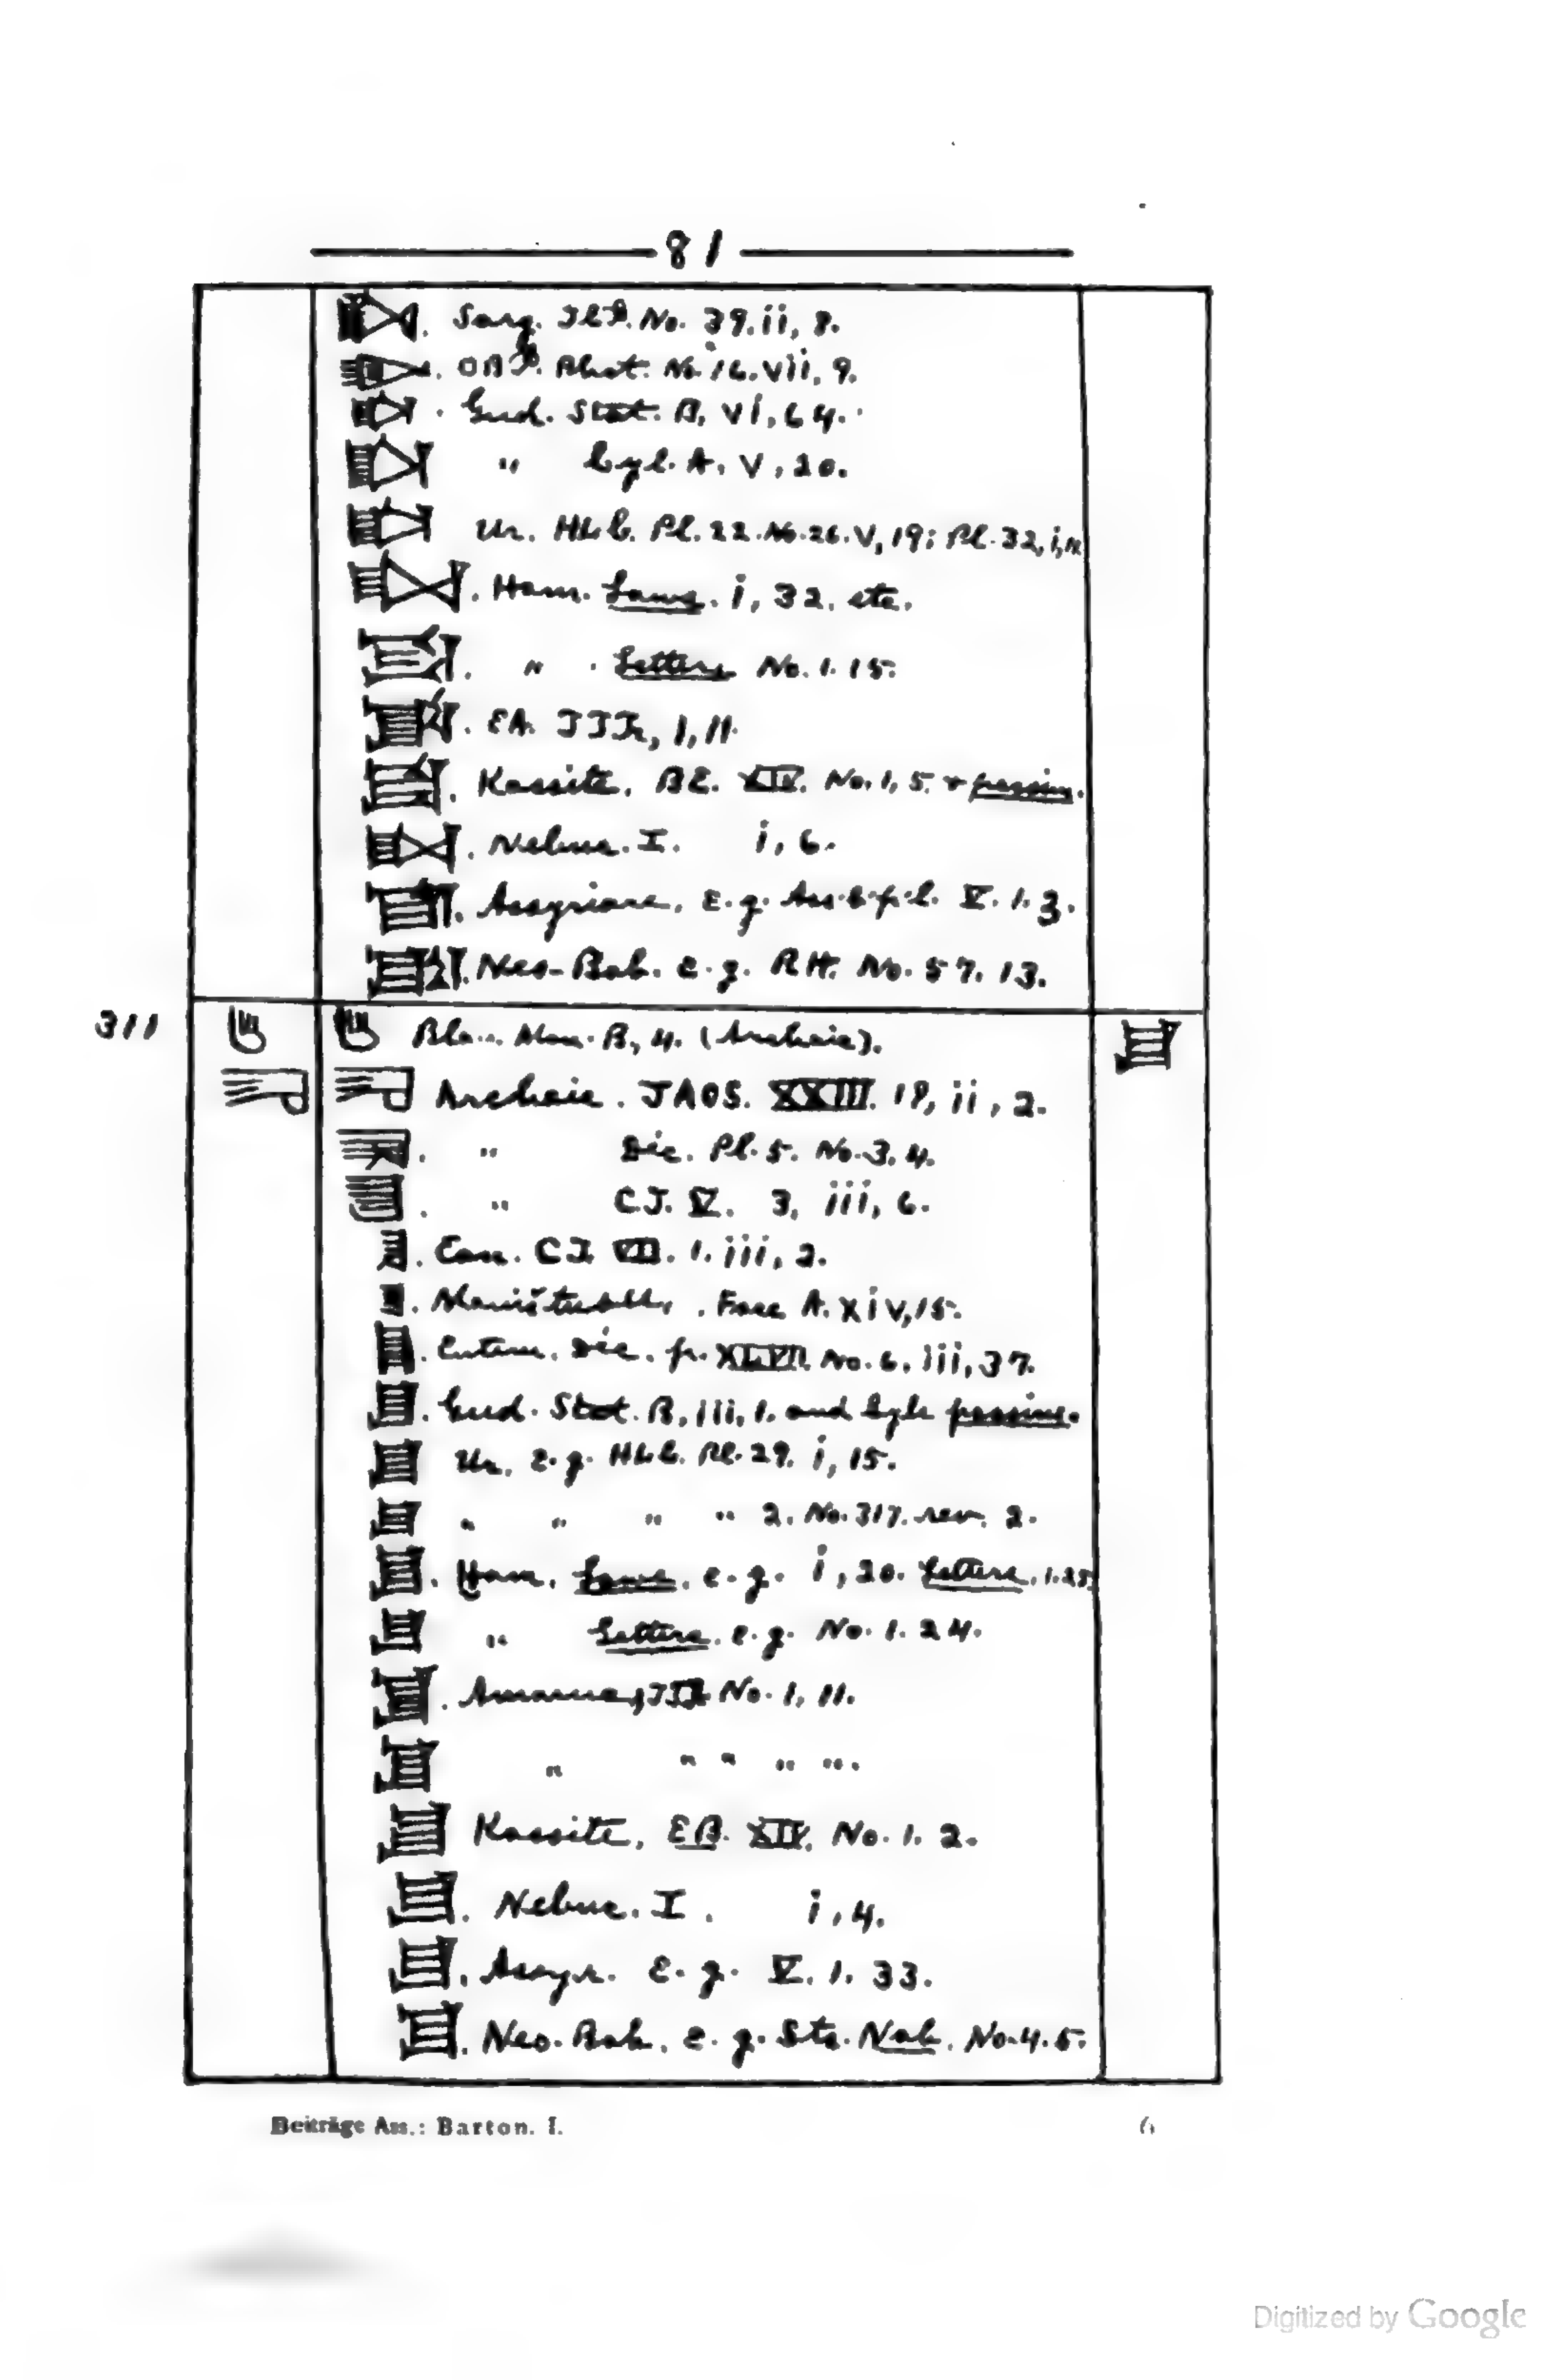 81
Sarg. No. 39. ii, 8.
vii, 9.
Gud. Stat. B, vi, 64.
" Cyl. A, V, 20.
Ur. HLC. Pl. 22. No. 26. V, 19; Pl. 32, i,
Ham. Laws. i, 32. etc.
" Letters No. 1. 15.
EA. 1, 11.
Kassite, BE. XIV. No. 1, 5. + passim.
Nebuc. I. i, 6.
Assyrian, E.g. V. 1. 3.
Neo-Bab. e.g. RH. No. 57. 13.
311
Mon. B, 4. (Archaic).
Archaic. JAOS. XXIII. 18, ii, 2.
" Déc. Pl. 5. No. 3. 4.
" C.T. V. 3, iii, 6.
Ean. CT VII. 1. iii, 2.
Face A. xiv, 15.
Entem. Déc. XLVII. No. 6. iii, 37.
Gud. Stat. B, iii, 1. and Cyls passim.
Ur. e.g. HLC. Pl. 29. i, 15.
" " " " 2. No. 317. rev. 2.
Ham. Laws. e.g. i, 20. Letters, 1. 25.
" Letters. e.g. No. 1. 24.
Amarna, No. 1, 11.
" " " " ".
Kassite, EB. XIV. No. 1. 2.
Nebuc. I. i, 4.
Assyr. E.g. V. 1. 33.
Neo. Bab. e.g. Str. Nab. No. 4. 5.
Beiträge Ass.: Barton. I. 6
Digitized by Google